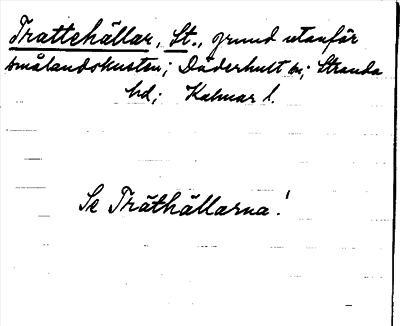 Trattehällar, St., grund utanför
smålandskusten; Döderhult sn; Stranda
hd; Kalmar l.
Se Träthällarna!